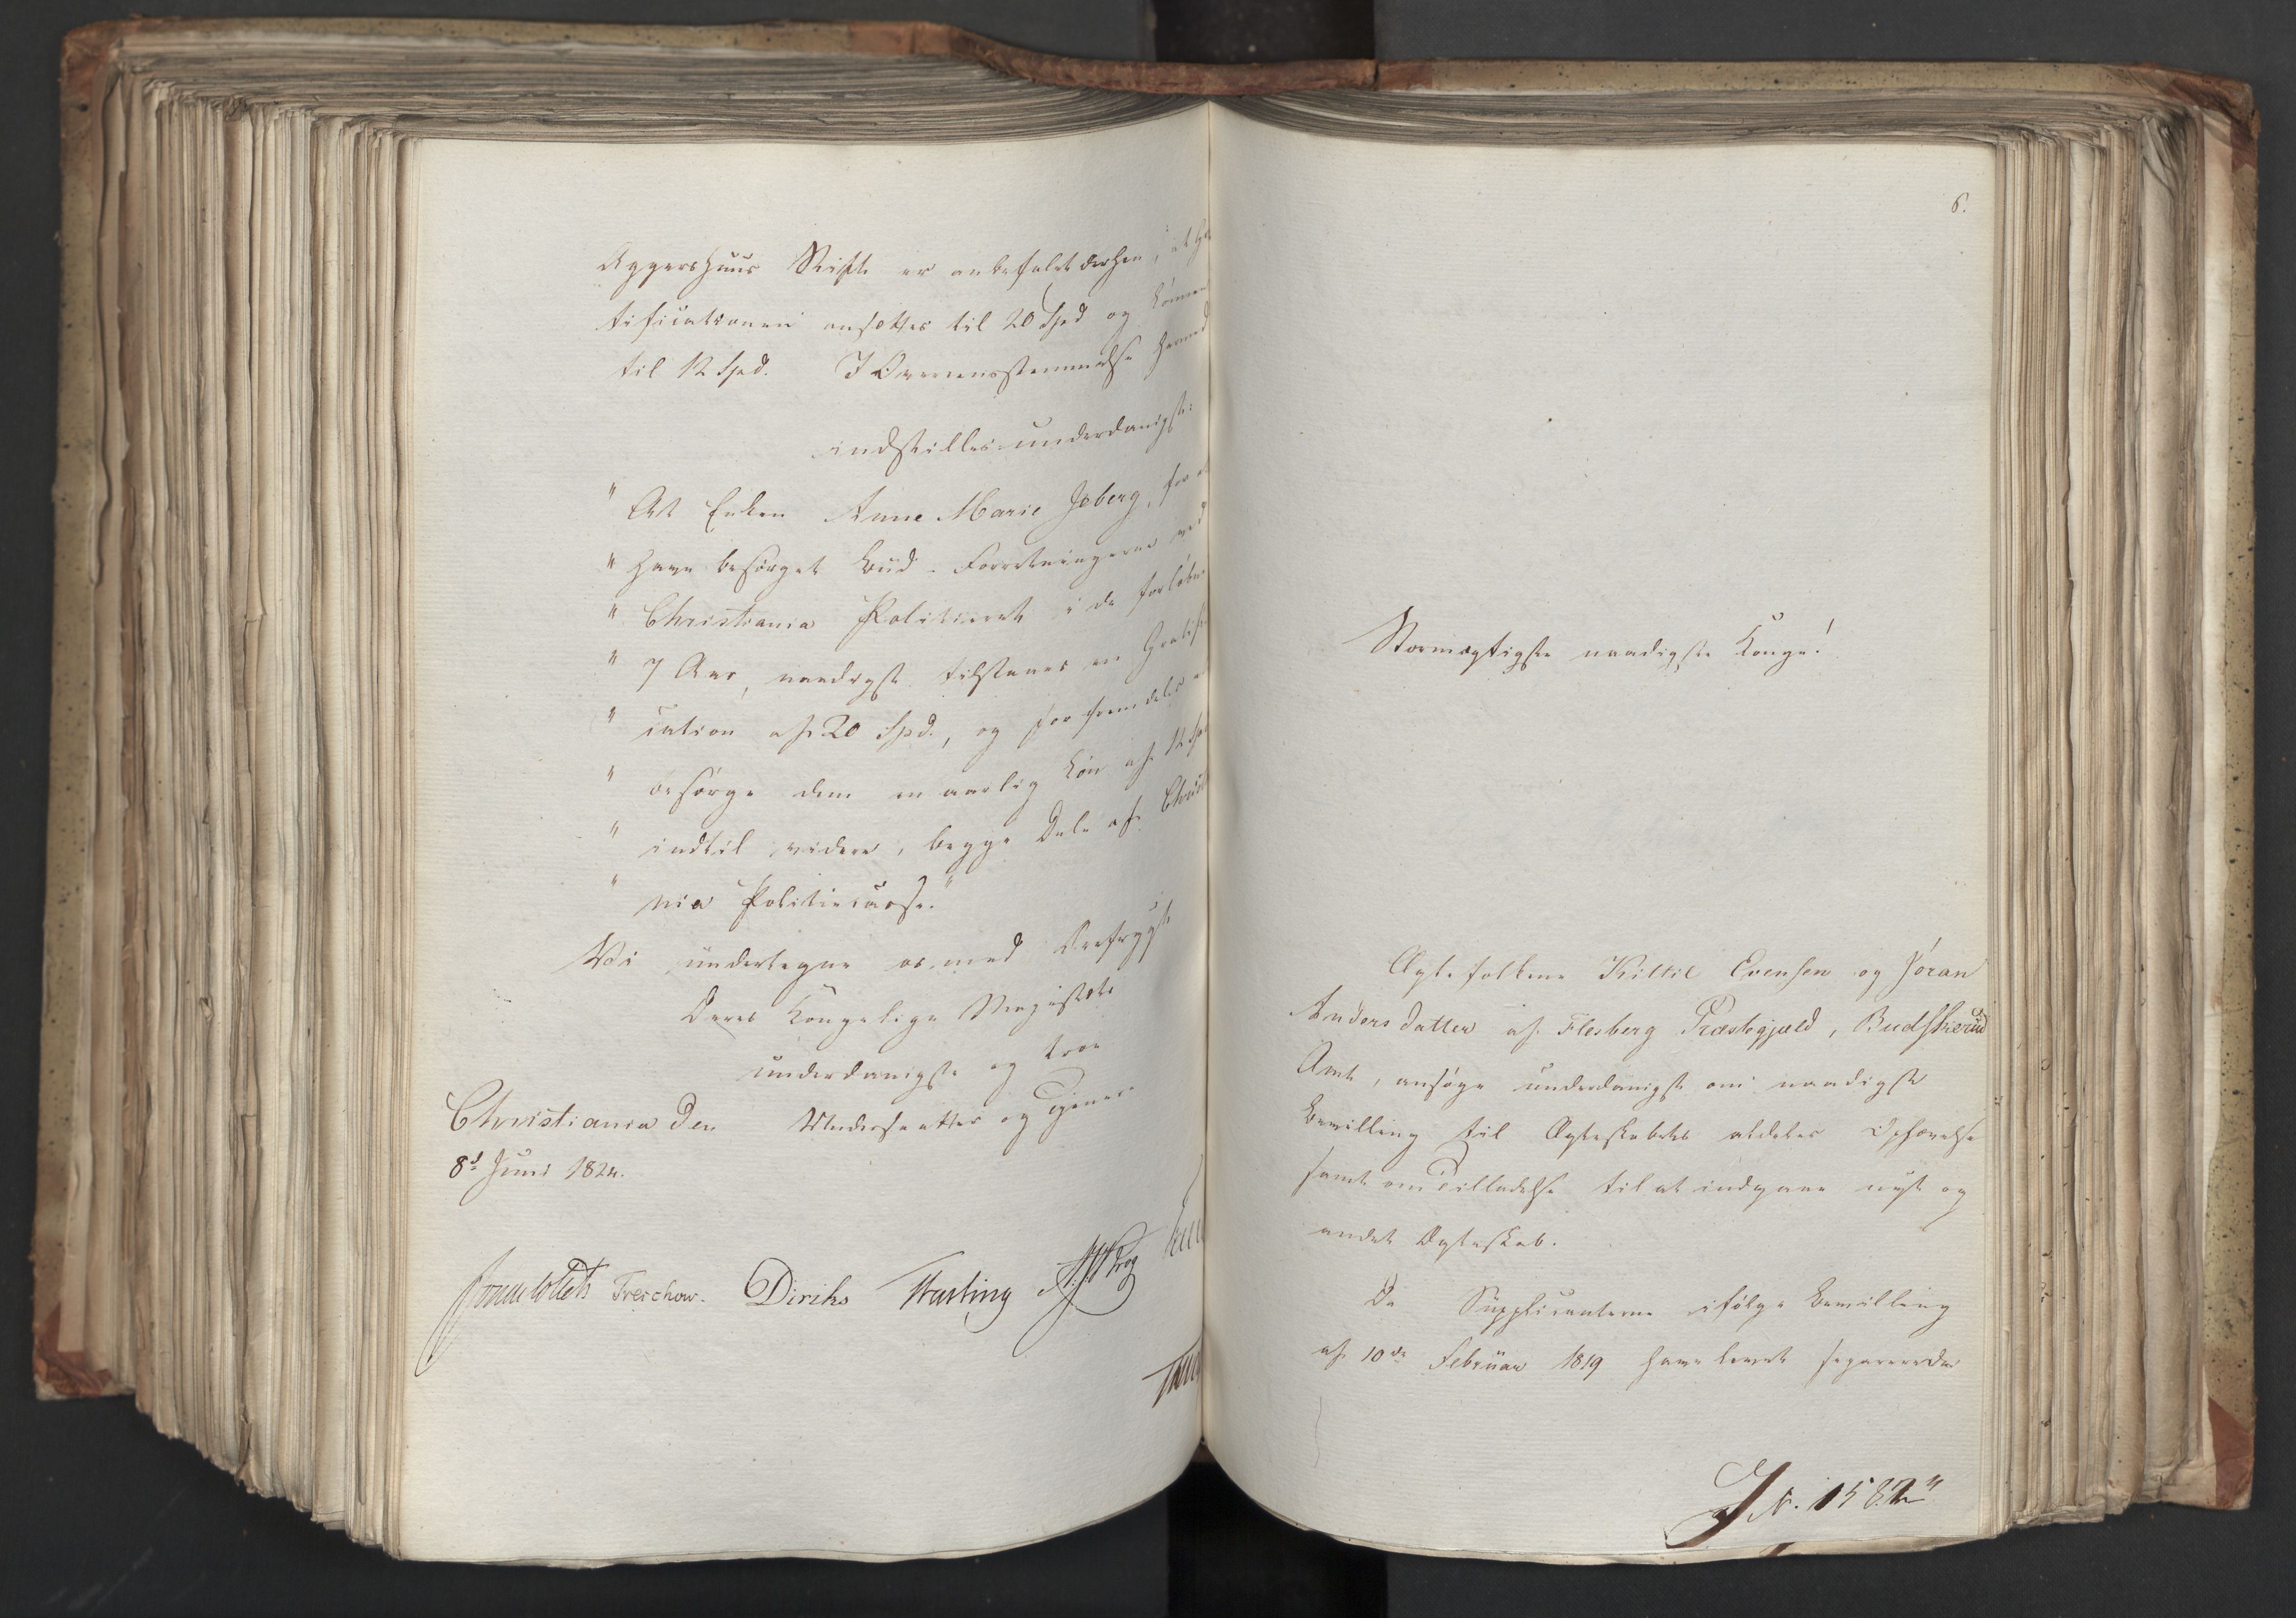 Aggershuus Stift er anbefalet derhen, at
tificationen ansættes til 20 Spd og Lønnen
til 12 Spd. I Overeensstemmelse hermed
indstilles underdanigst:
" At Enken Anne Marie Jeberg, for at
" have besørget Bud-Forretningerne ved
" Christiania Politieret i de forløbne
" 7 Aar, naadigst tilstaaes en Gratifi
" cation af 20 Spd., og for fremdeles at
" besørge dem en aarlig Løn af 12 Spd
" indtil videre, begge Dele af Christia
" nia Politiecasse."
Vi undertegne os med Ærefrygt
Deres Kongelige Majestæts
underdanigste og troe
Christiania den Undersaatter og Tjenere
8d Juni 1824.
Sommerfeldt Treschow. Diriks Motzfeldt Krog
6.
Stormægtigste naadigste Konge!
Ægtefolkene Kittil Evensen og Jøran
Andersdatter af Flesberg Præstegjæld, Budskerud
Amt, ansøge underdanigst om naadigst
Bevilling til Ægteskabets aldeles Ophævelse
samt om Tilladelse til at indgaae nyt og
andet Ægteskab.
Da Supplicanterne ifølge Bevilling
af 10de Februar 1819 have levet separerede
J N. 1582